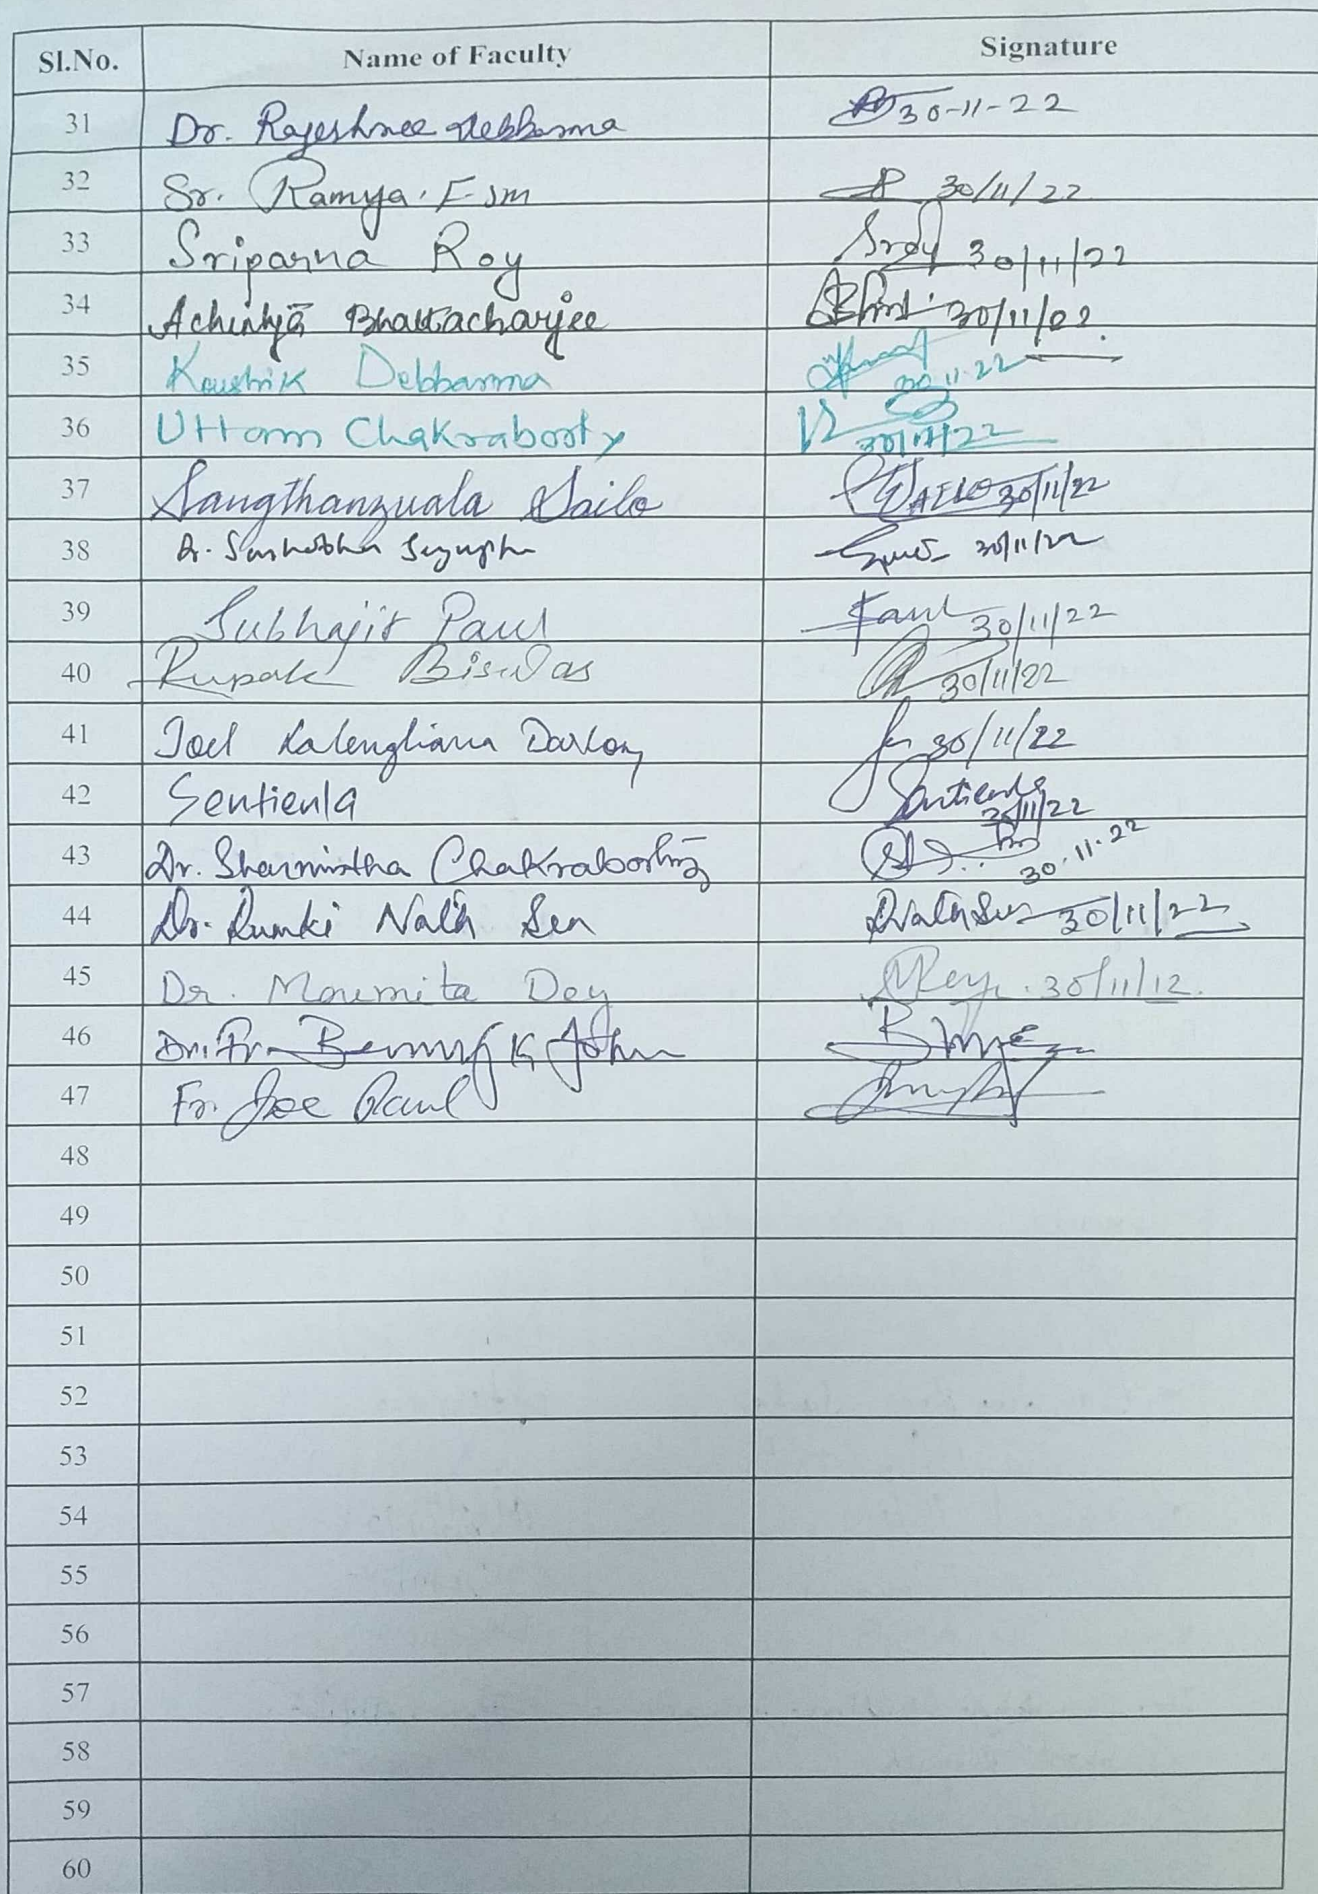 Sl.No. Name of Faculty Signature
31 Dr. Rajeshree Debbarma 30-11-22
32 Sr. Ramya. Fsm 30/11/22
33 Sriparna Roy Sroy 30/11/22
34 Achintya Bhattacharjee 30/11/22.
35 Koushik Debbarma 30.11.22
36 Uttam Chakraborty 30/11/22
37 Sangthanzuala Sailo SAILO 30/11/22
38 Dr. 30/11/22
39 Subhajit Paul Paul 30/11/22
40 Rupak Biswas 30/11/22
41 Joel Lalengliana Darlong 30/11/22
42 Sentienla Sentienla 30/11/22
43 Dr. Sharmistha Chakraborty 30.11.22
44 Dr. Rumki Nath Sen RNath Sen 30/11/22
45 Dr. Moumita Dey MDey. 30/11/12.
46 Dr. Fr. Benny K John
47 Fr. Joe Paul
48
49
50
51
52
53
54
55
56
57
58
59
60